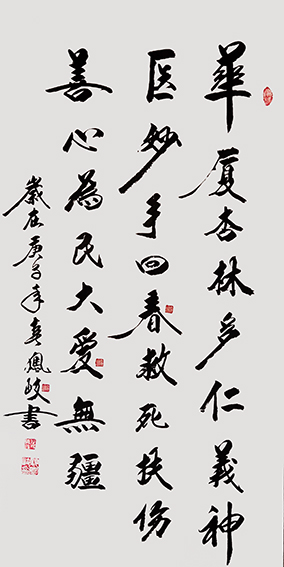 華厦杏林多仁義神
医妙手回春救死扶傷
善心為民大愛無疆
歲在庚子年鳳岐書